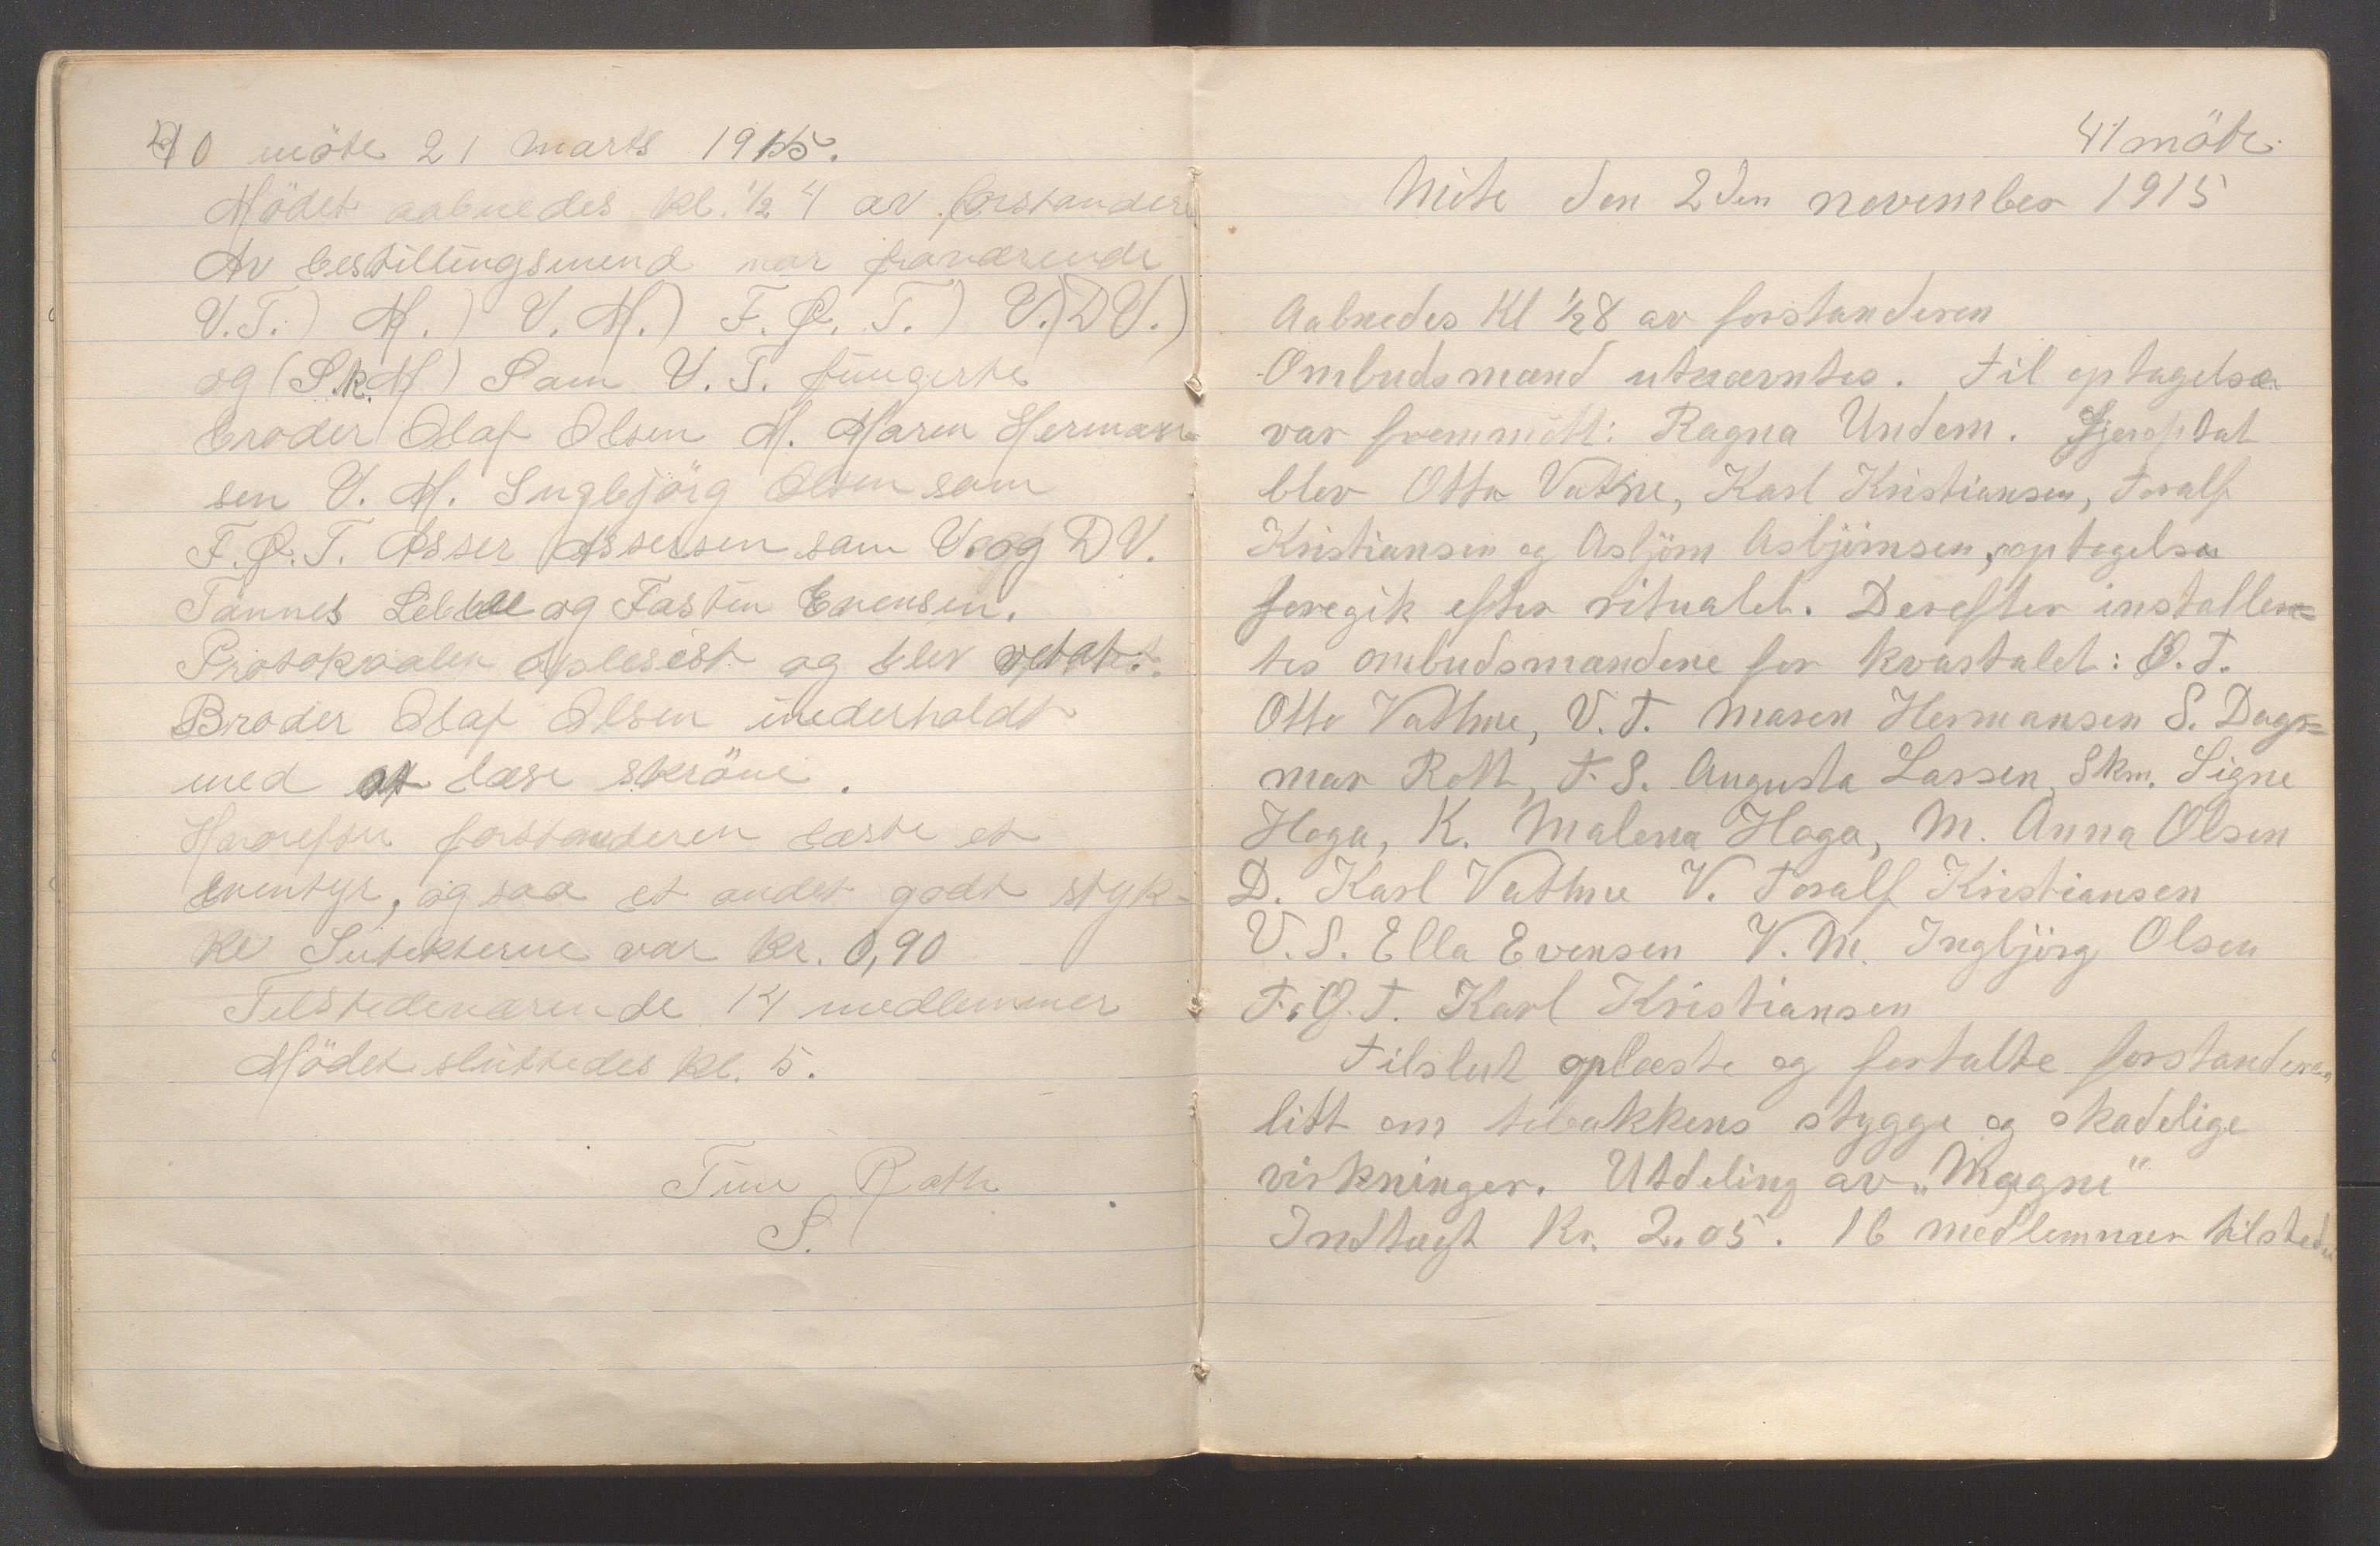 40 møte 21 marts 1915.
Mödet aabnedes kl. ½ 4 av forstandere
Av bestillingsmend var fraværende
V.T.) M.) V. M.) F. Q. T.) V.) D V.)
og (S.k.M) Som V. T. fungerte
broder Olaf Olsen M. Maren Herman-
sen V. M. Ingbjörg Olsen som
F.Q.T. Asser Assersen som V. og D V.
Tønnes og Fastin Evensen.
Protokoalen oplesist og blev vetat.
Broder Olaf Olsen inederholdt
med at læse skröne.
Harorefter forstanderen læste et
Eventyr, og saa et andet godt styk-
ke Intekterne var kr. 0,90
Telstedeværende 14 medlemmer
Mödet sluttedes kl. 5.
Tine Roth
S.
41 möte.
Möte den 2den november 1915
Aabnedes Kl ½8 av forstanderen
Ombudsmænd utnævntes. Til optagelse
var fremmött: Ragna Undem. Gjenoptat
blev Otto Vathne, Karl Kristiansen, Toralf
Kristiansen og Asbjörn Asbjörnsen, optagelse
foregik efter ritualet. Derefter installer=
tes ombudsmændene for kvartalet: O.T.
Otto Vathne, V. T. Maren Hermansen S. Dag=
mar Rott, F. S. Augusta Larsen, Skm. Signe
Hoga, K. Malena Hoga, M. Anna Olsen
D. Karl Vathne V. Toralf Kristiansen
V. S. Ella Evensen V. M. Ingbjörg Olsen
F. Q. T. Karl Kristiansen
Tilslut oplæste og fortalte forstanderen
litt om tobakkens stygge og skadelige
virkninger. Utdeling av „Magne"
Indtægt Kr. 2.05. 16 medlemmer tilstede